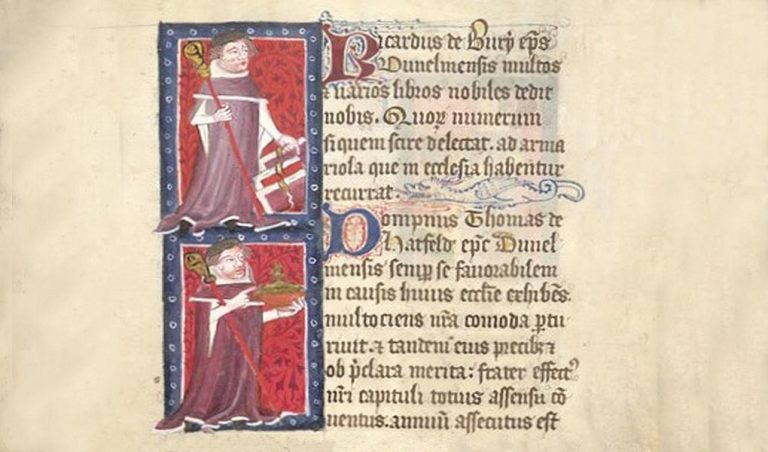 Ricardus de Bury ep̄s
Dunelmensis multos
⁊ uarios libros nobiles dedit
nobis. Quoꝝ numerum
siquem scire delectat. ad arma
riola que in ecclesia habentur
recurrat.
Dompnus Thomas de
hatfeld ep̄c Dunel
mensis semꝑ se fauorabilem
in causis huius eccl̄ie exhibēs.
multociens nr̄a comoda ꝓcu
riuit. ⁊ tandem eius precibꝫ ⁊
ob p̄clara merita: frater effectꝰ
nr̄i capituli totius assensu cō
uentus. annuū assecutus est